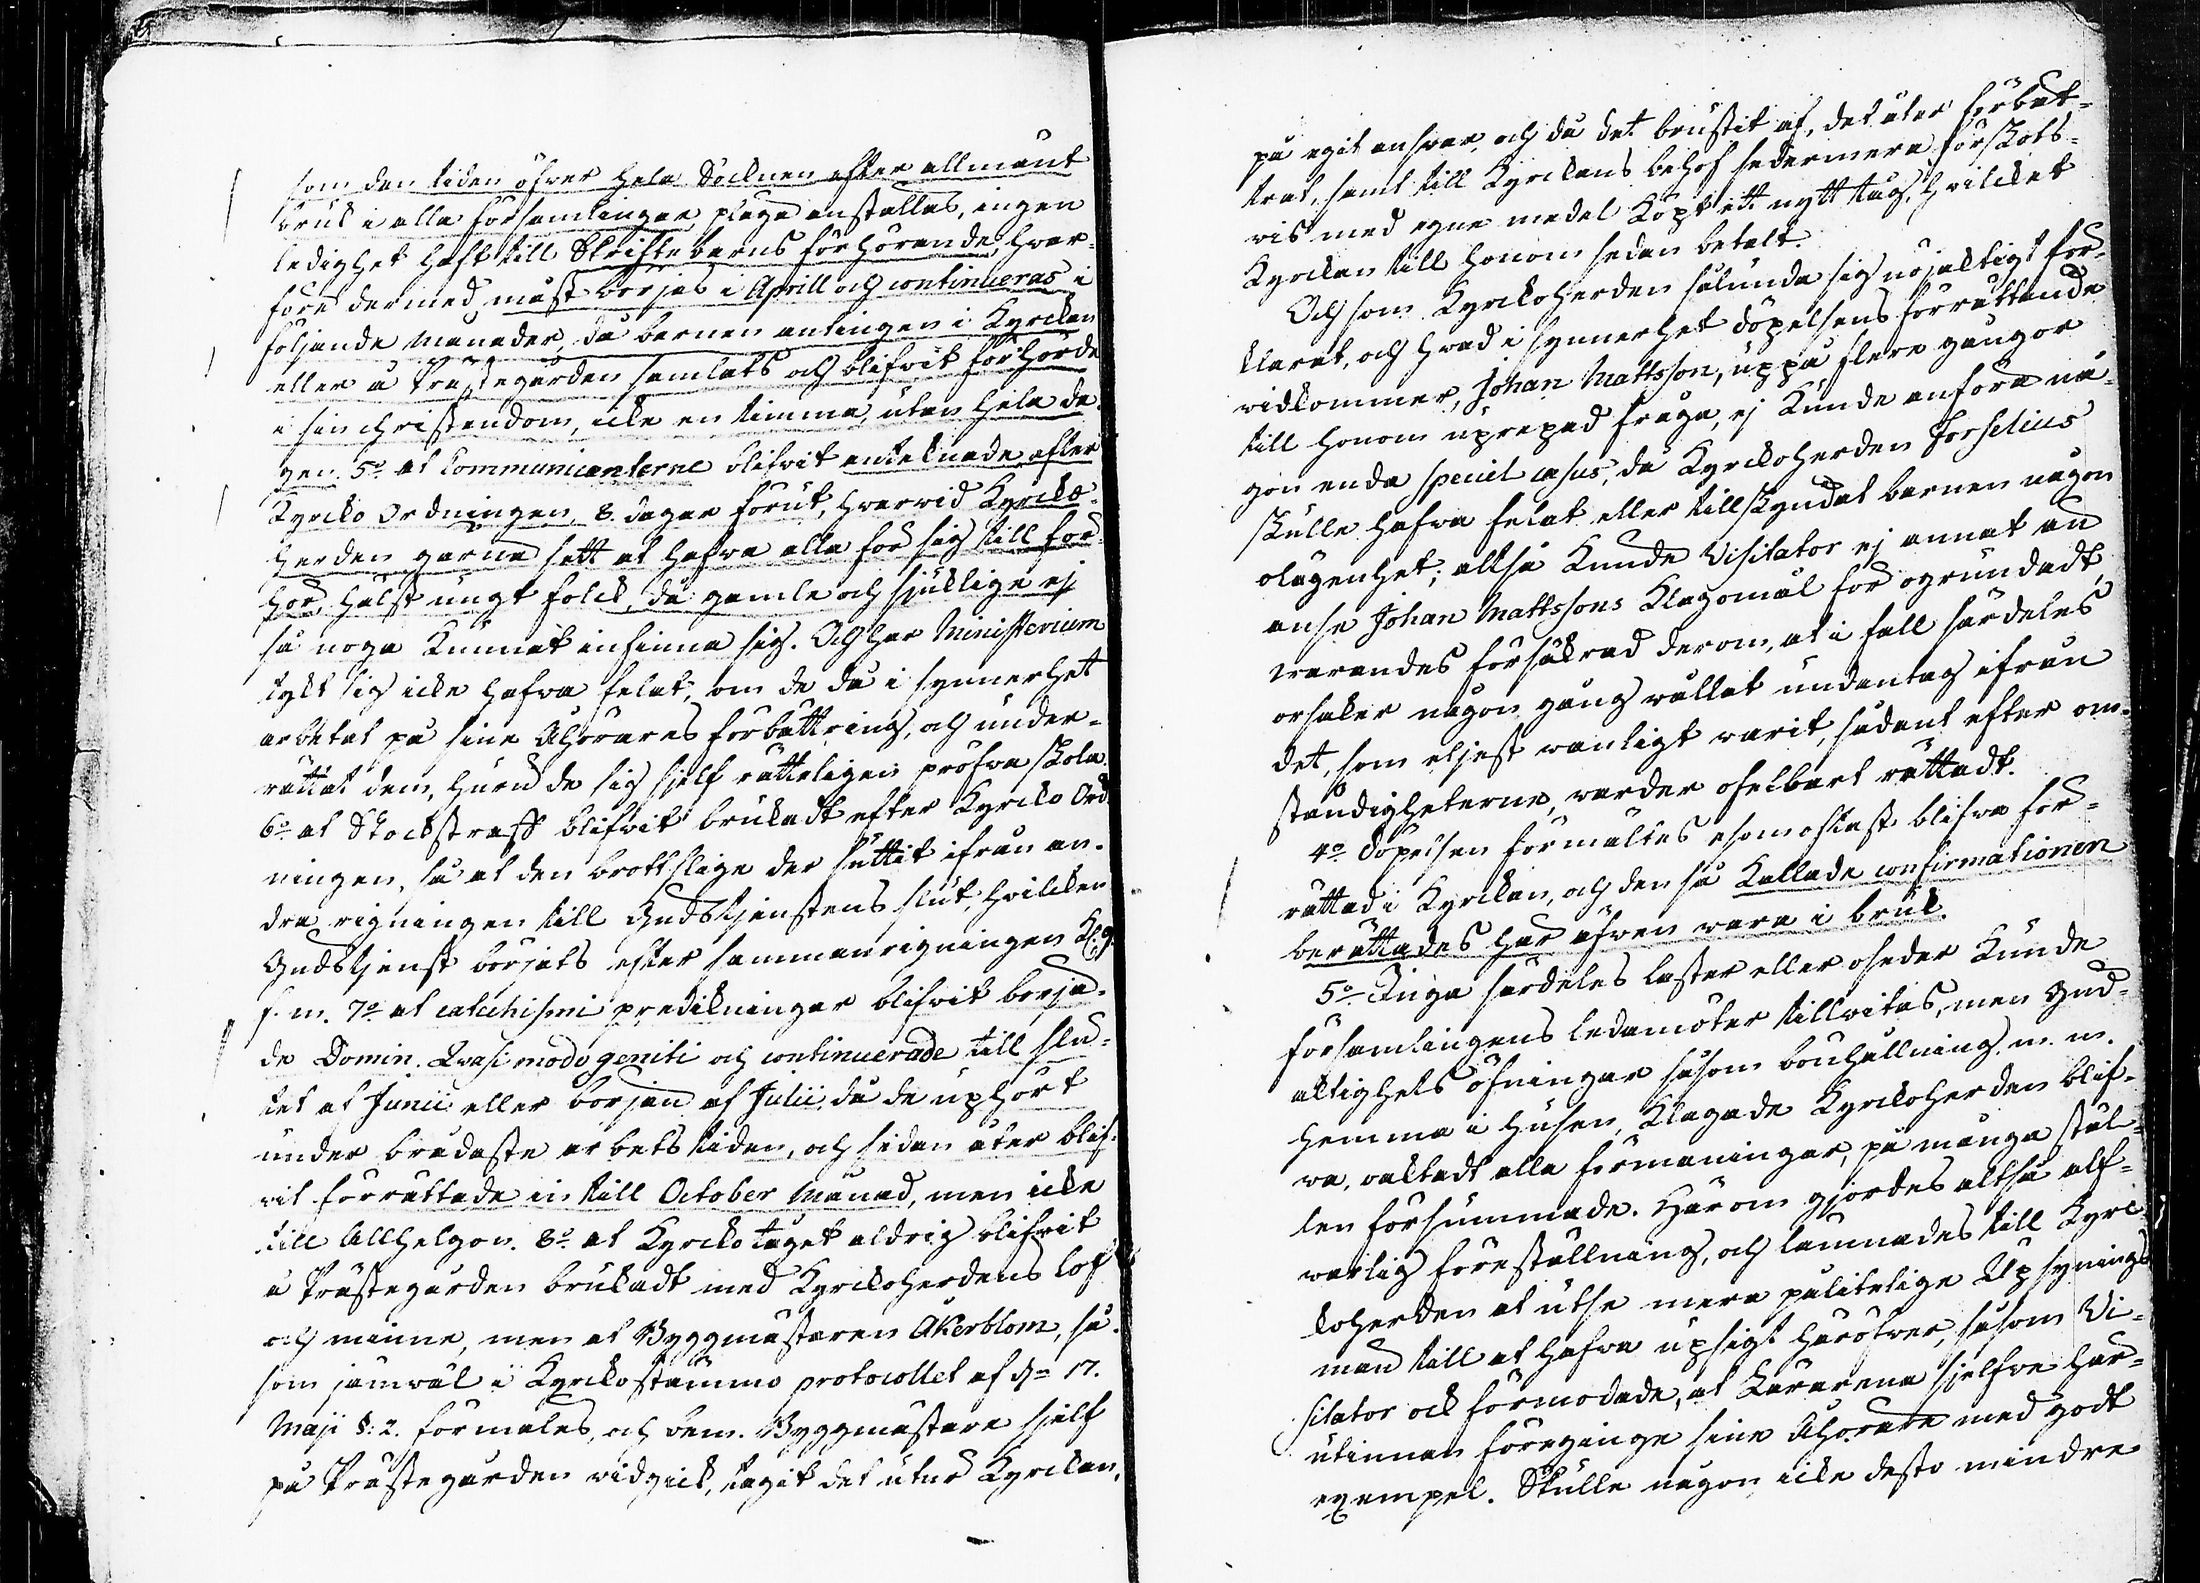 som den tiden öfver hela Socknen efter allmänt
bruk i alla församlingar plaga anställas, ingen
ledighet haft till Skriftebarns förhörande, hvar-
före dermed mäst börjas i Aprill och continueras i
följande månader, då barnen antingen i Kyrckan
eller å Prästegården samlats och blifvit förhörde
i sin christendom, icke en timma, utan hela da-
gen. 5:o at Communicanterne blifvit antecknade efter
Kyrcko Ordningen, 8. dagar förut, hvarvid Kyrcko-
herden gärna sett at hafva alla för sig till för-
hör, hälst ungt folck, då gamle och sjuklige ej
så noga kunnat infinna sig. Och har Ministerium
tykt sig icke hafva felat, om de då i synnerhet
arbetat på sine Åhörares förbättring, och under-
rättat dem, huru de sig sjelf rätteligen pröfva skola.
6:o at Stockstraff blifvit brukadt efter Kyrcko Ord-
ningen, så at den brottslige der suttit ifrån an-
dra rigningen till Gudstjenstens slut, hvilcken
Gudstjenst börjats efter sammanrigningen Kl. 9.
f. m. 7:o at catechismi predikningar blifvit börja-
de Domin. Qvasi modo geniti och continuerade till slu-
tet af Junii eller början af Julii, då de uphört
under brådaste arbetstiden, och sedan åter blif-
vit förrättade in till October månad, men icke
till Allhelgon. 8:o at Kyrckotåget aldrig blifvit
å Prästegården brukadt med Kyrckoherdens lof
och minne, men at Byggmästaren Åkerblom, så-
som jämväl i Kyrckostämmo protocollet af d. 17.
Maji §: 2. förmäles, och bem. Byggmästare sjelf
på Prästegården vidgick, tagit det utur Kyrckan,
på egit ansvar, och då det brustit af, det åter förbät-
trat, samt till Kyrckans behof sedermera förskots-
vis med egne medel köpt ett nytt tåg, hvilcket
Kyrckan till honom sedan betalt.
Och som Kyrckoherden sålunda sig nöjaktigt för-
klarat, och hvad i synnerhet döpelsens förrättande
vidkommer, Johan Mattsson, uppå flere gångor
till honom uprepad fråga, ej kunde anföra nå-
gon enda speciel casus, då Kyrckoherden Forselius
skulle hafva felat eller tillskyndat barnen någon
olägenhet; alltså kunde Visitator ej annat än
anse Johan Mattssons klagomål för ogrundadt,
varandes försäkrad derom, at i fall särdeles
orsaker någon gång vållat undantag ifrån
det, som eljest vanligt varit, sådant efter om-
ständigheterne, varder ofelbart rättadt.
4:o Döpelsen förmältes esomoftast blifva för-
rättad i Kyrckan, och den så kallade confirmationen
berättades här äfven vara i bruk.
5:o Inga särdeles laster eller oseder kunde
församlingens ledamöter tillvitas, men Gud-
aktighets öfningar såsom bönhållning. m. m.
hemma i husen, klagade Kyrckoherden blif-
va, oaktadt alla förmaningar, på många stäl-
len försummade. Härom gjordes altså alf-
varlig föreställning, och lämnades till Kyrc-
koherden at utse mera pålitelige Upsynings
män till at hafva upsigt häröfver, såsom Vi-
sitator ock förmodade, at Lärarena sjelfve här-
utinnan föregingo sine Åhörare med godt
exempel. Skulle någon icke desto mindre